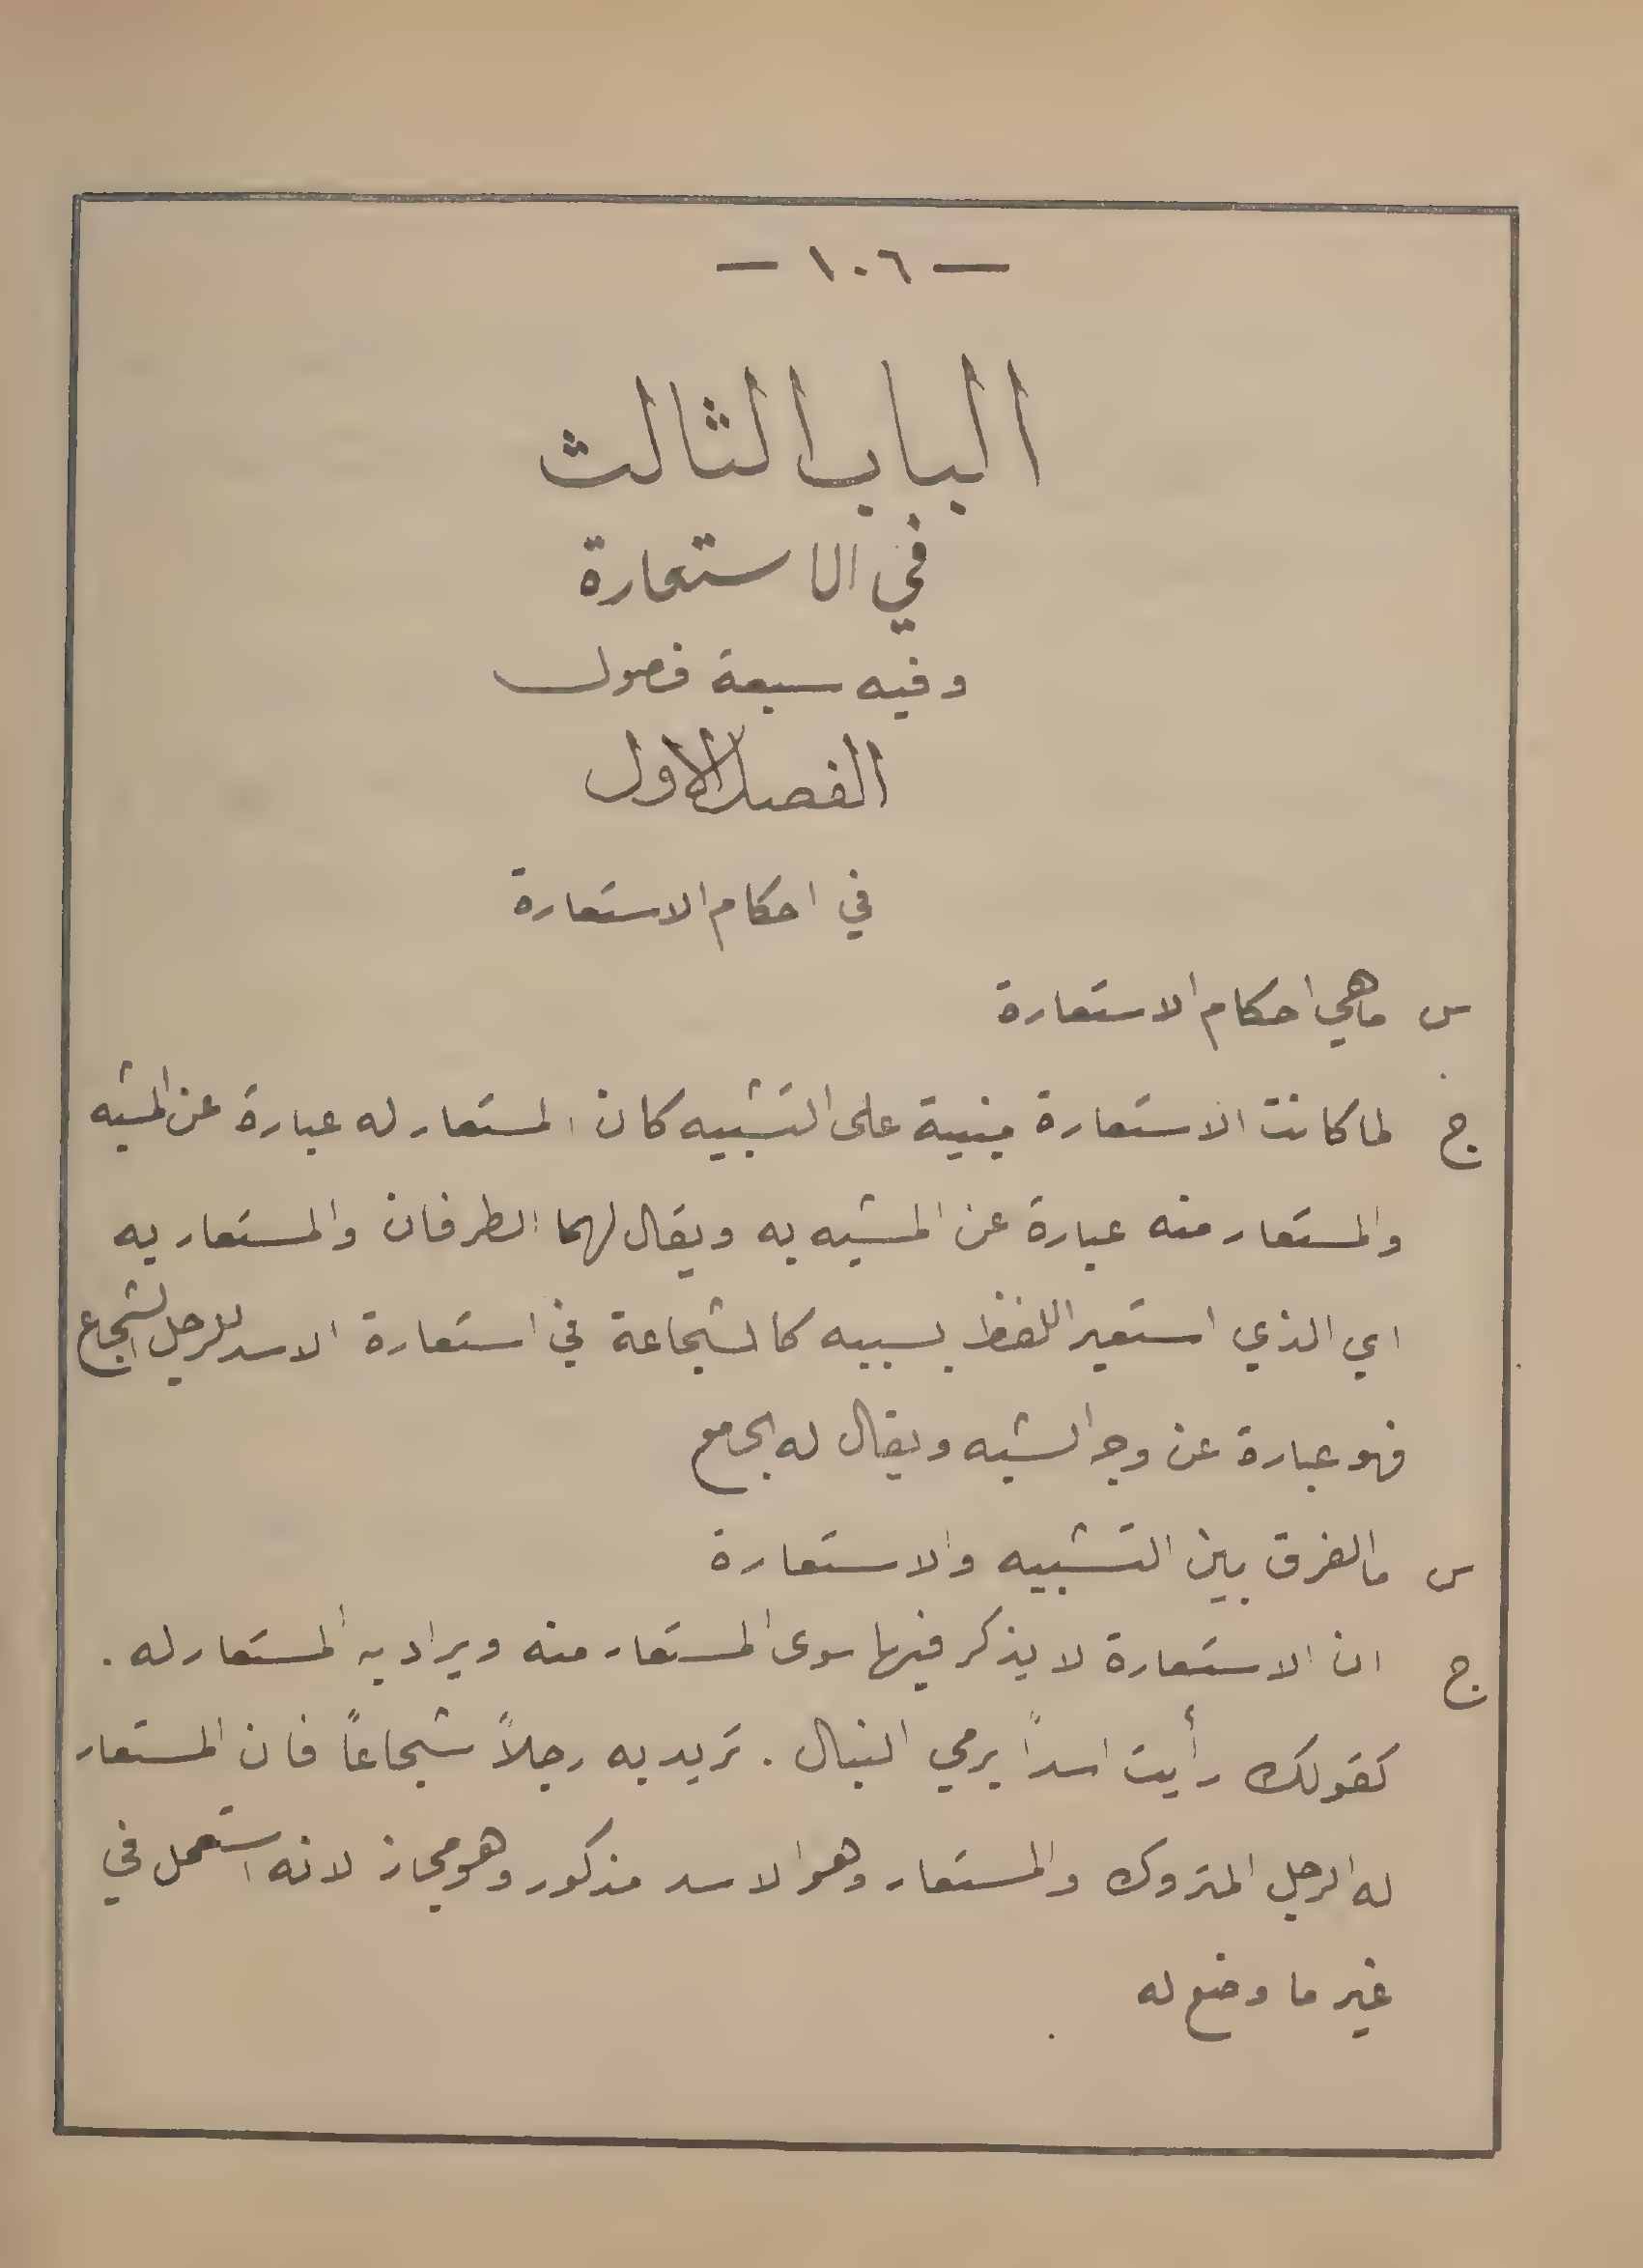 — ١٠٦ —
الباب الثالث
في الاستعارة
وفيه سبعة فصول
الفصل الاول
في احكام الاستعارة
س ما هي احكام الاستعارة
ج لما كانت الاستعارة مبنية على التشبيه كان المستعار له عبارة عن المشبه
والمستعار منه عبارة عن المشبه به ويقال لهما الطرفان والمستعار به
اي الذي استعير اللفظ بسببه كالشجاعة في استعارة الاسد للرجل الشجاع
فهو عبارة عن وجه الشبه ويقال له الجامع
س ما الفرق بين التشبيه والاستعارة
ج ان الاستعارة لا يذكر فيها سوى المستعار منه ويراد به المستعار له .
كقولك رأيت اسداً يرمي النبال . تريد به رجلاً شجاعاً فان المستعار
له الرجل المتروك والمستعار وهو الاسد مذكور وهو مجاز لانه استعمل في
غير ما وضع له